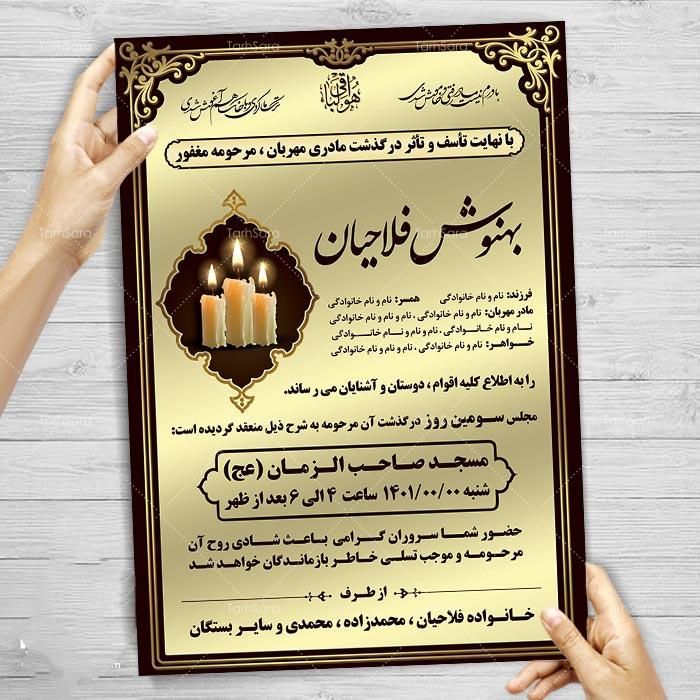 هو الباقی
با نهایت تأسف و تأثر درگذشت مادری مهربان ، مرحومه مغفور
بهنوش فلاحیان
فرزند: نام و نام خانوادگی همسر: نام و نام خانوادگی
مادر مهربان: نام و نام خانوادگی ، نام و نام و نام خانوادگی
نام و نام خانوادگی ، نام و نام و نام خانوادگی
خواهر: نام و نام خانوادگی ، نام و نام و نام خانوادگی
را به اطلاع کلیه اقوام ، دوستان و آشنایان می رساند.
مجلس سومین روز درگذشت آن مرحومه به شرح ذیل منعقد گردیده است:
مسجد صاحب الزمان (عج)
شنبه ۱۴۰۱/۰۰/۰۰ ساعت ۴ الی ۶ بعد از ظهر
حضور شما سروران گرامی باعث شادی روح آن
مرحومه و موجب تسلی خاطر بازماندگان خواهد شد
از طرف
خانواده فلاحیان ، محمدزاده ، محمدی و سایر بستگان
TarhSara